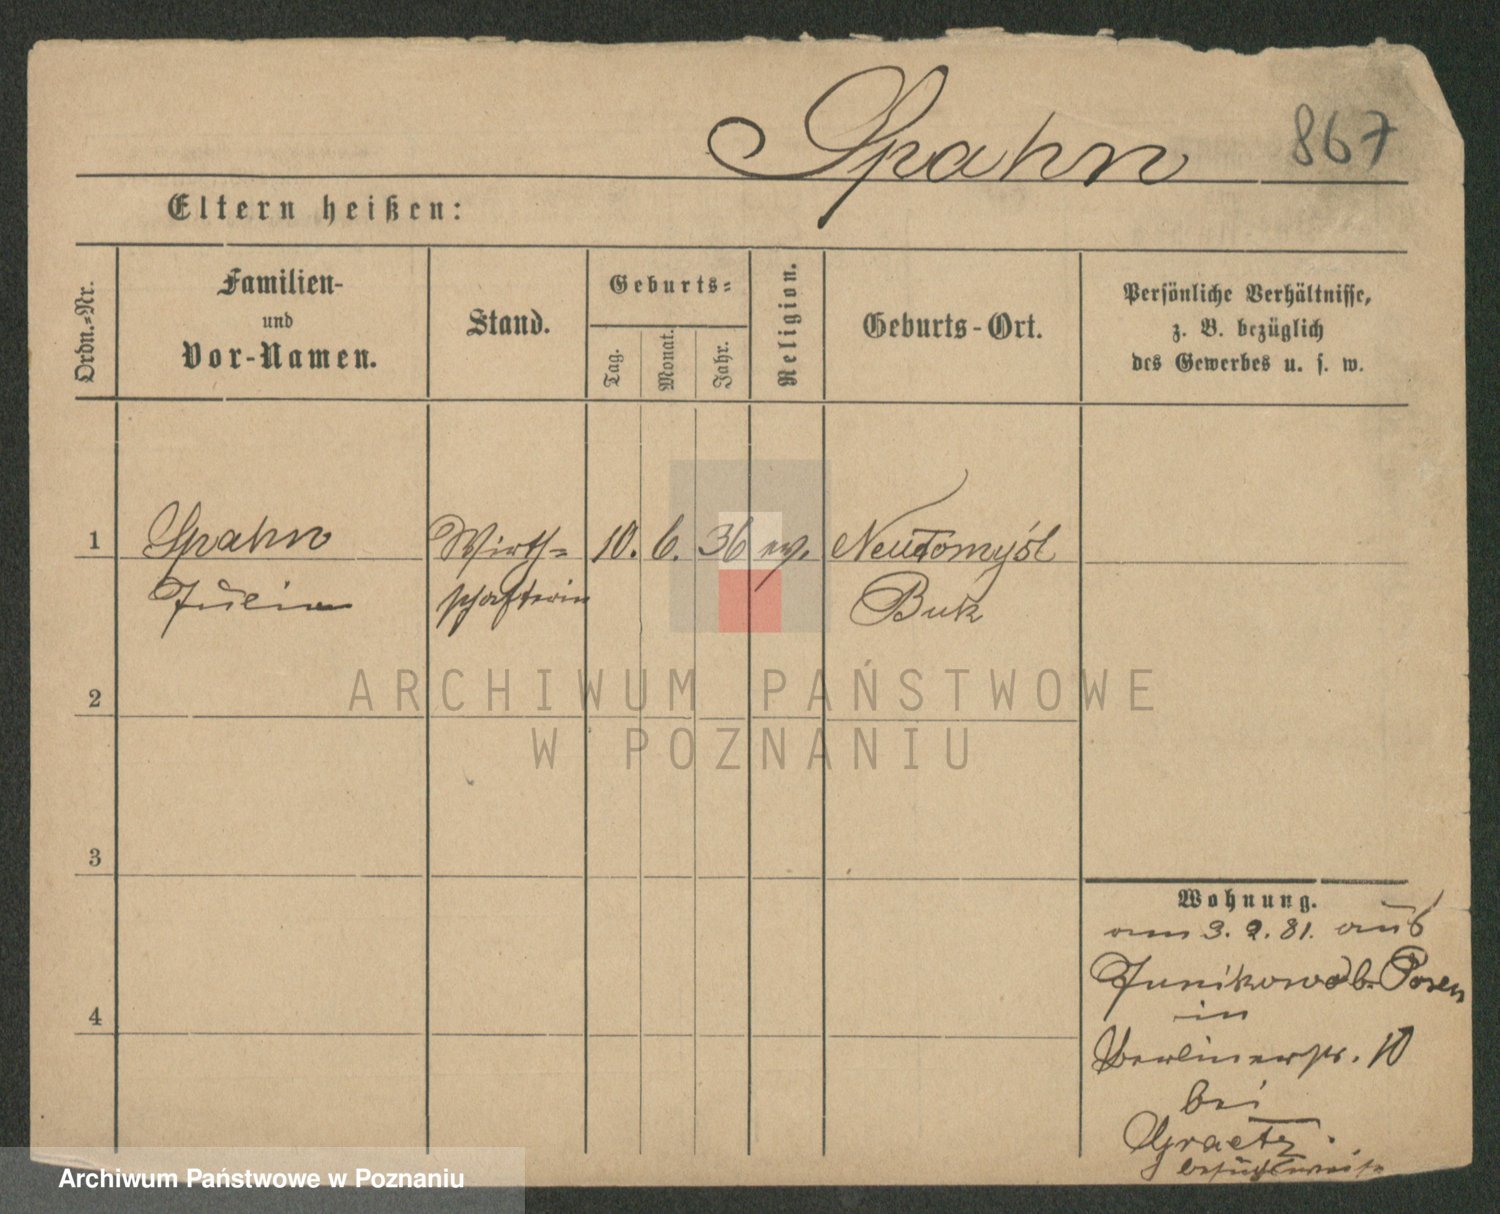 Spahn 867
Eltern heißen:
Ordn.=Nr.
Familien-
und
Vor-Namen.
Stand.
Geburts=
Tag.
Monat.
Jahr.
Religion.
Geburts-Ort.
Persönliche Verhältnisse,
z. B. bezüglich
des Gewerbes u. s. w.
1 Spahn Wirth= 10. 6. 36 ev. Neutomyśl
schafterin Buk
2
ARCHIWUM PAŃSTWOWE
W POZNANIU
3
Wohnung.
am 3. 2. 81. aus
Junikowo b. Posen
4
in
Berlinerstr. 10
bei
Graetz
besuchsweise
Archiwum Państwowe w Poznaniu